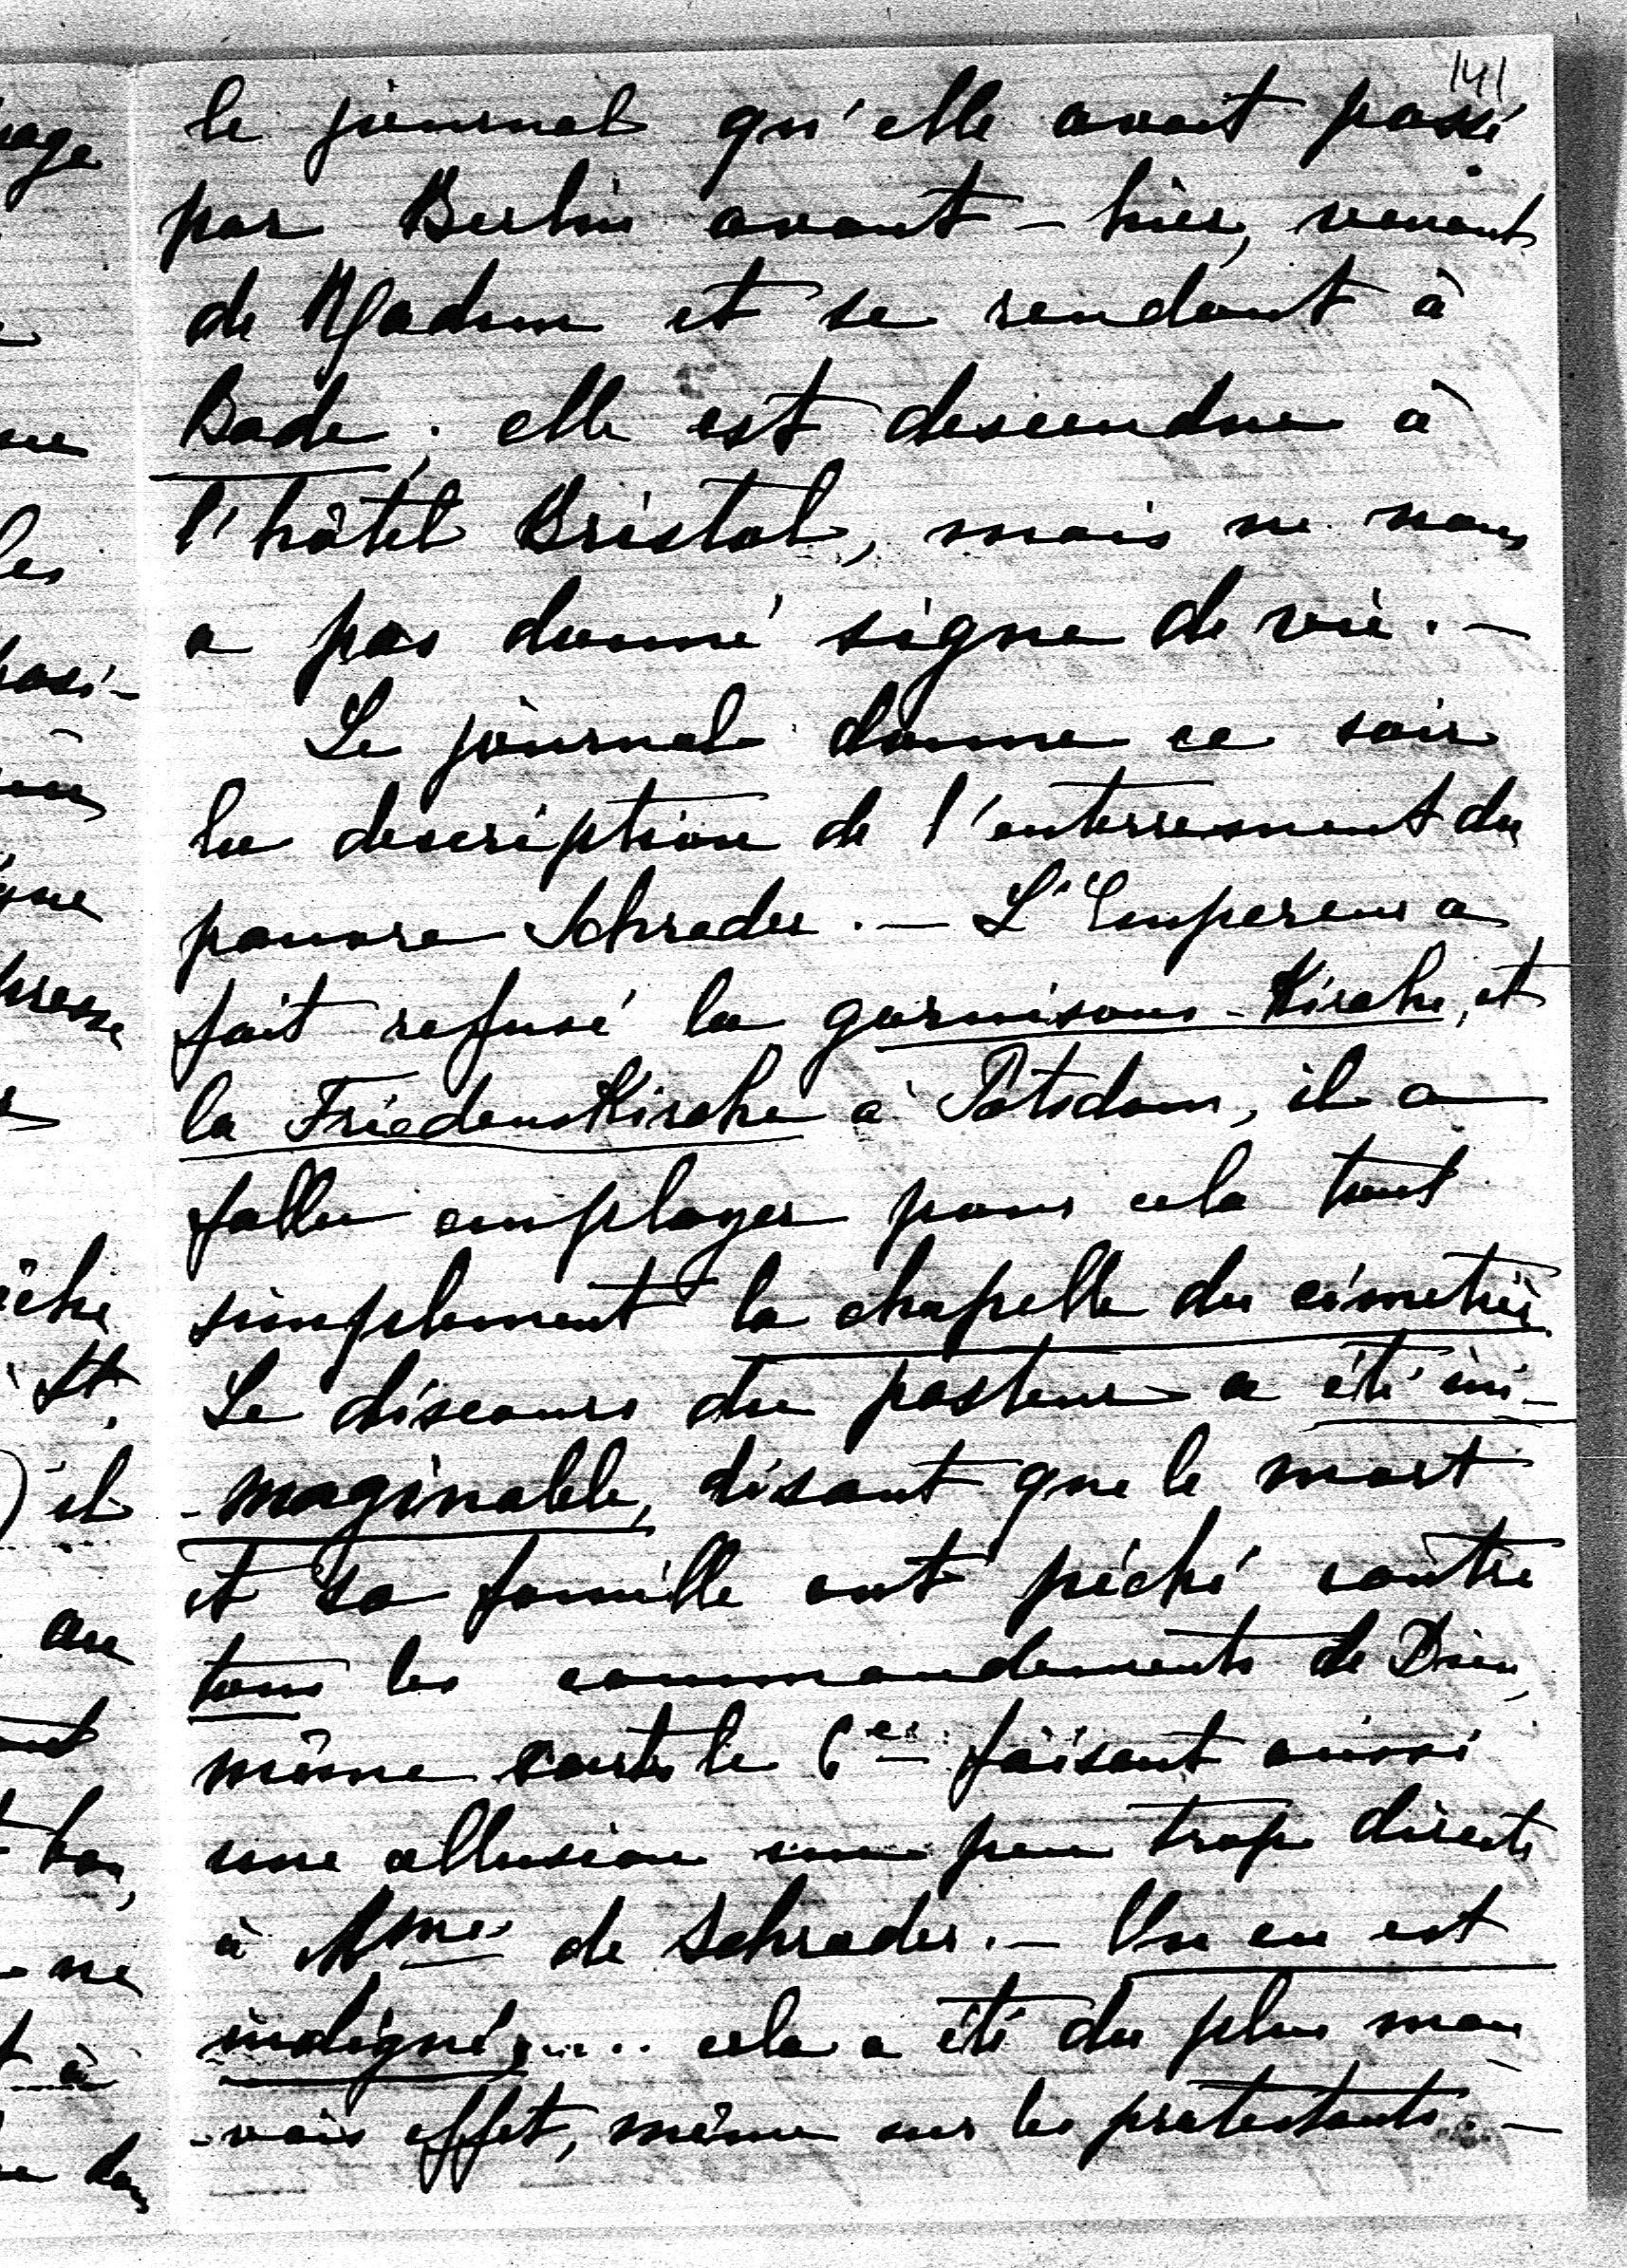 141
le journal qu'elle avait passé
par Berlin avant-hier, venant
de et se rendant à
Bade; elle est descendue à
l'hôtel Bristol, mais ne nous
a pas donné signe de vie. —
Le journal donne ce soir
la description de l'enterrement du
pauvre Schrader. — L'Empereur a
fait refusé la garnisons-Kirche, et
la Friedenskirche à Potsdam, il a
fallu employer pour cela tout
simplement la chapelle du cimetière
Le discours du pasteur a été ini-
-maginable, disant que le mort
et sa famille ont péché contre
tous les commandements de Dieu,
même contre le 6e faisant aussi
une allusion un peu trop directe
à Mme de Schrader. — On en est
indigné, .... cela a été du plus mau
-vais effet, même sur les protestants. —